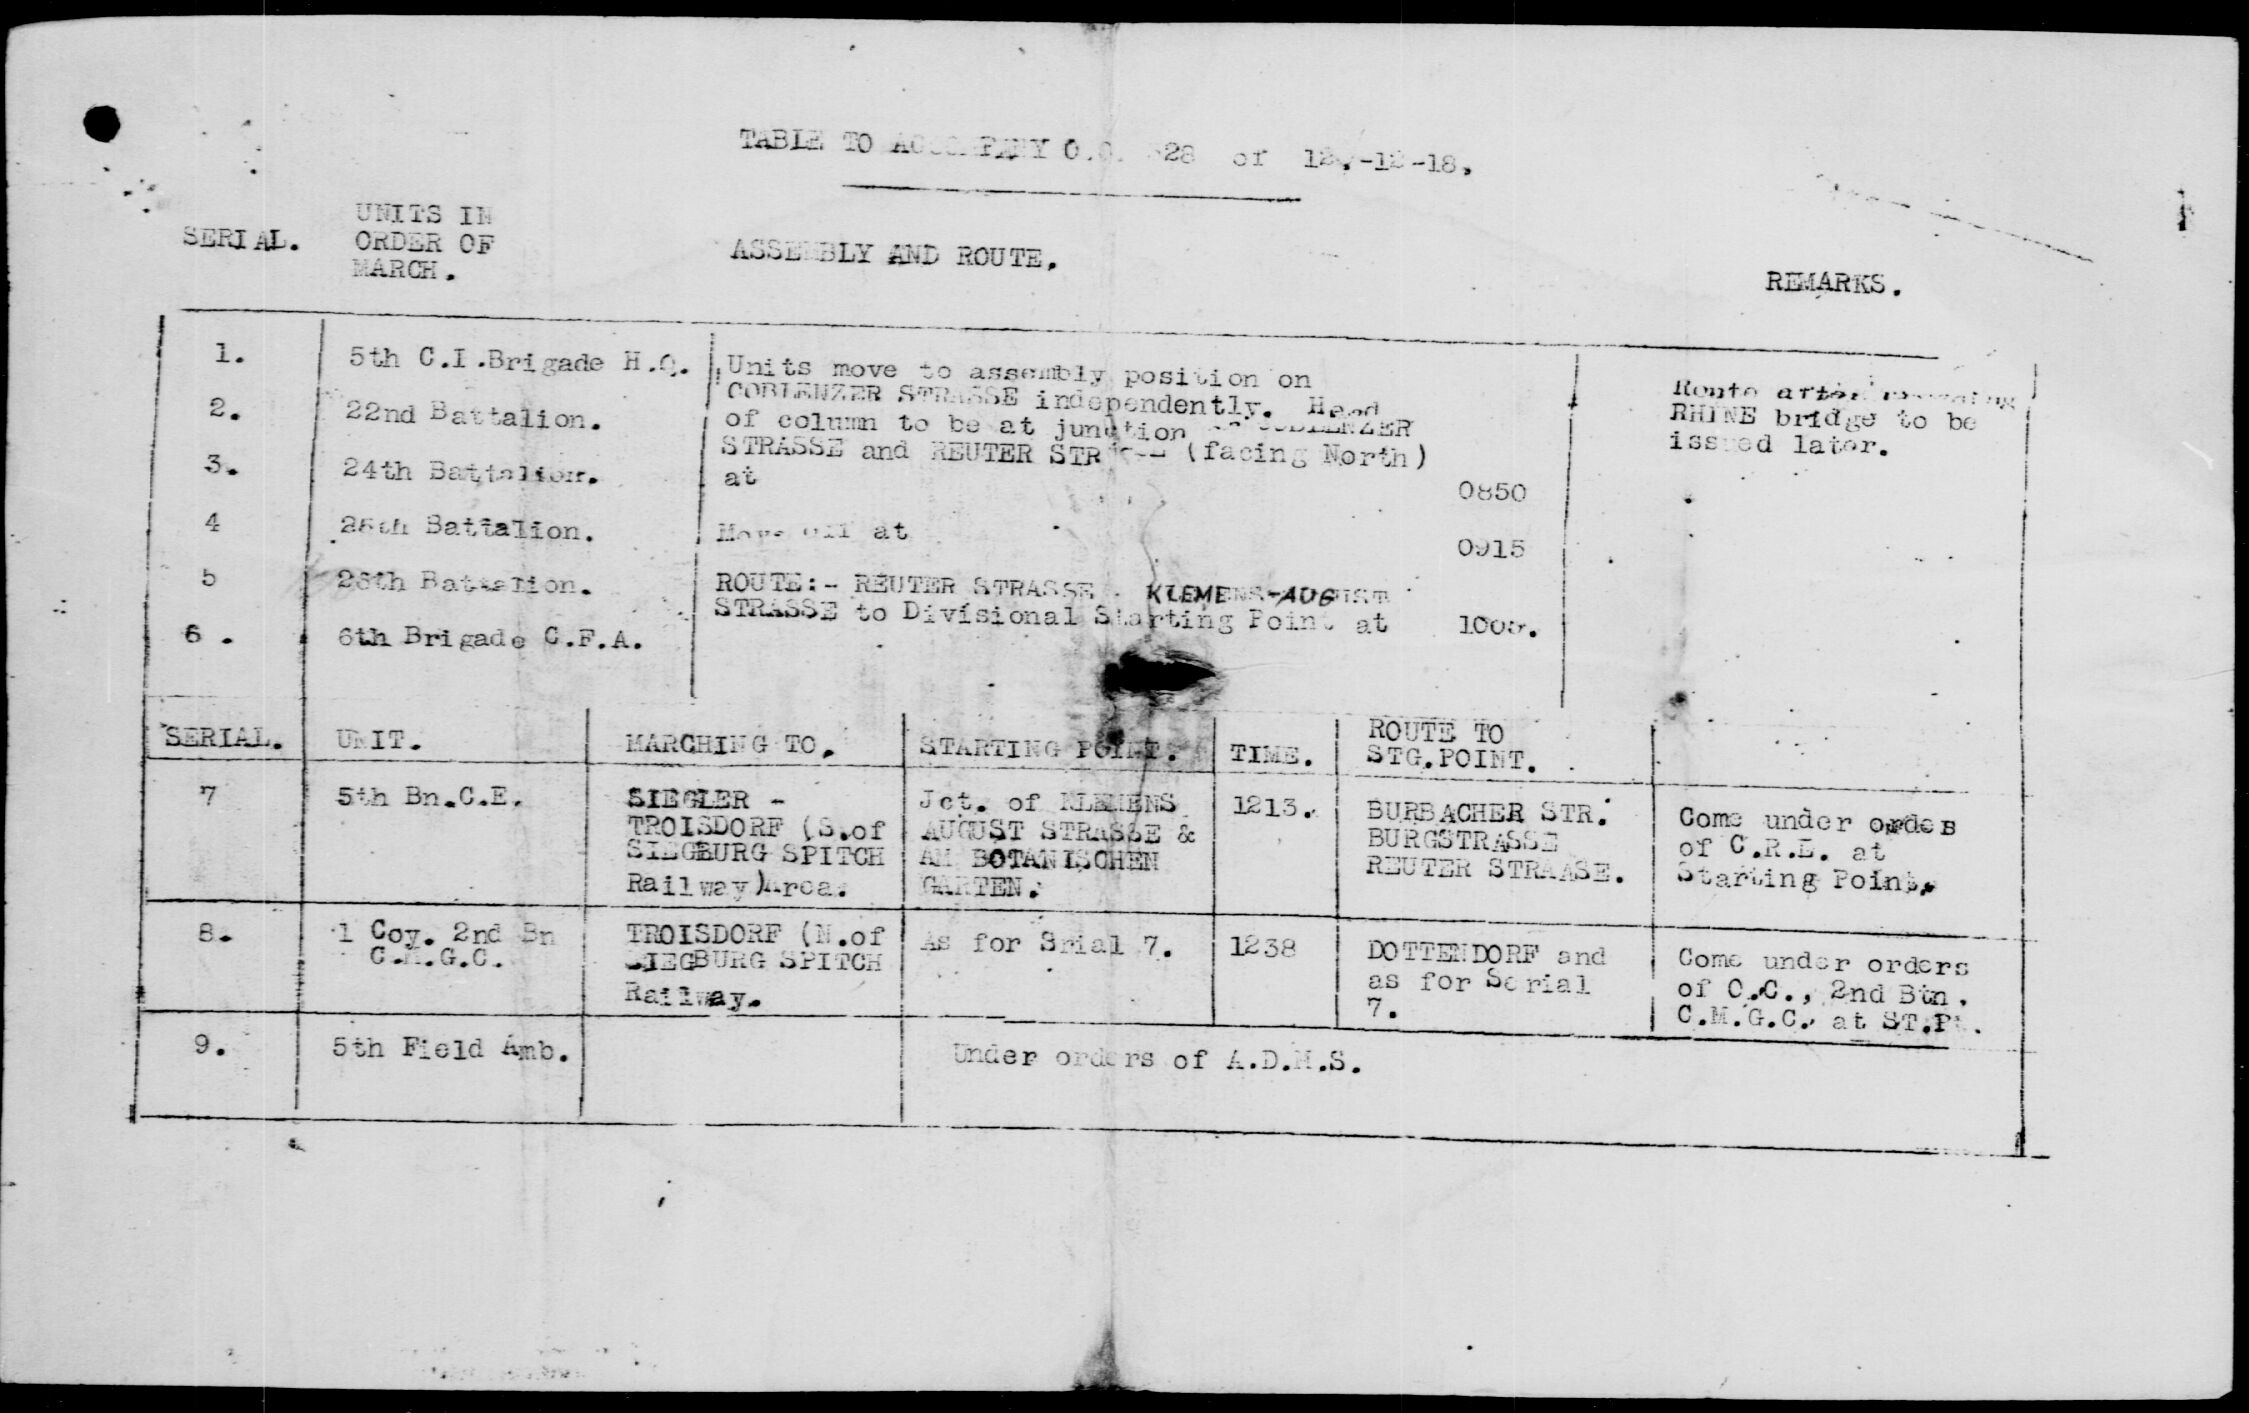 TABLE TO ACCOMPANY O.O. 28 of 12.-12-18.
SERIAL.
UNITS IN
ORDER OF
MARCH.
ASSEMBLY AND ROUTE.
REMARKS.
1. 5th C.I.Brigade H.Q.
2. 22nd Battalion.
3. 24th Battalion.
4 25th Battalion.
5 26th Battalion.
6. 6th Brigade C.F.A.
Units move to assembly position on
COBLENZER STRASSE independently. Head
of column to be at junction COBLENZER
STRASSE and REUTER (facing North)
at 0850
Move off at 0915
ROUTE:- REUTER STRASSE - KLEMENS-AUGUST
STRASSE to Divisional Starting Point at
Route after
RHINE bridge to be
issued later.
SERIAL. UNIT. MARCHING TO. STARTING POINT. TIME.
ROUTE TO
STG.POINT.
7 5th Bn.C.E.
SIEGLER -
TROISDORF (S.of
SIEGBURG SPITCH
Railway)Area.
Jct. of KLEMENS
AUGUST STRASSE &
AM BOTANISCHEN
GARTEN.
1213.
BURBACHER STR.
BURGSTRASSE
REUTER STRAASE.
Come under orders
of C.R.E. at
Starting Point.
8. 1 Coy. 2nd Bn
C.M.G.C.
TROISDORF (N.of
SIEGBURG SPITCH
Railway.
As for Srial 7.
1238
DOTTENDORF and
as for Serial
7.
Come under orders
of O.C., 2nd Btn.
C.M.G.C. at ST.Pt.
9. 5th Field Amb.
Under orders of A.D.M.S.